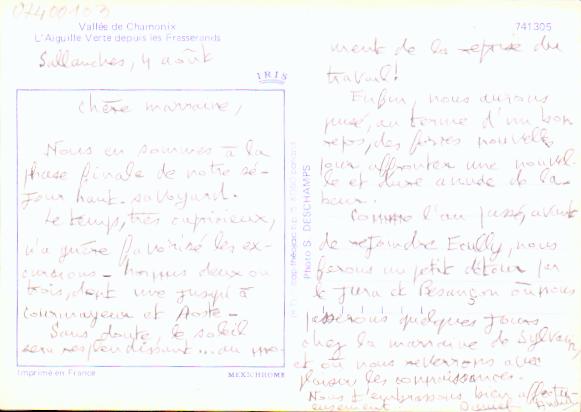 07400103
Vallée de Chamonix
L'Aiguille Verte depuis les Frasserands
741305
Sallanches, 4 août
IRIS
Chère marraine,
Nous en sommes à la
phase finale de notre sé-
jour haut-savoyard.
Le temps, très capricieux,
n'a guère favorisé les ex-
cursions - hormis deux ou
trois, dont une jusqu'à
Courmayeur et Aoste -
Sans doute, le soleil
sera resplendissant... au mo-
Imprimé en France
MEXICHROME
Photo S. DESCHAMPS
ment de la reprise du
travail!
Enfin, nous aurons
puisé, au terme d'un bon
repos, des forces nouvelles
pour affronter une nouvel-
le et dure année de la-
beur.
Comme l'an passé, avant
de rejoindre Ecully, nous
ferons un petit détour par
le Jura et Besançon où nous
passerons quelques jours
chez la marraine de Sylvain,
et où nous reverrons avec
plaisir les connaissances.
Nous t'embrassons bien affectu-
eusement
Daniel